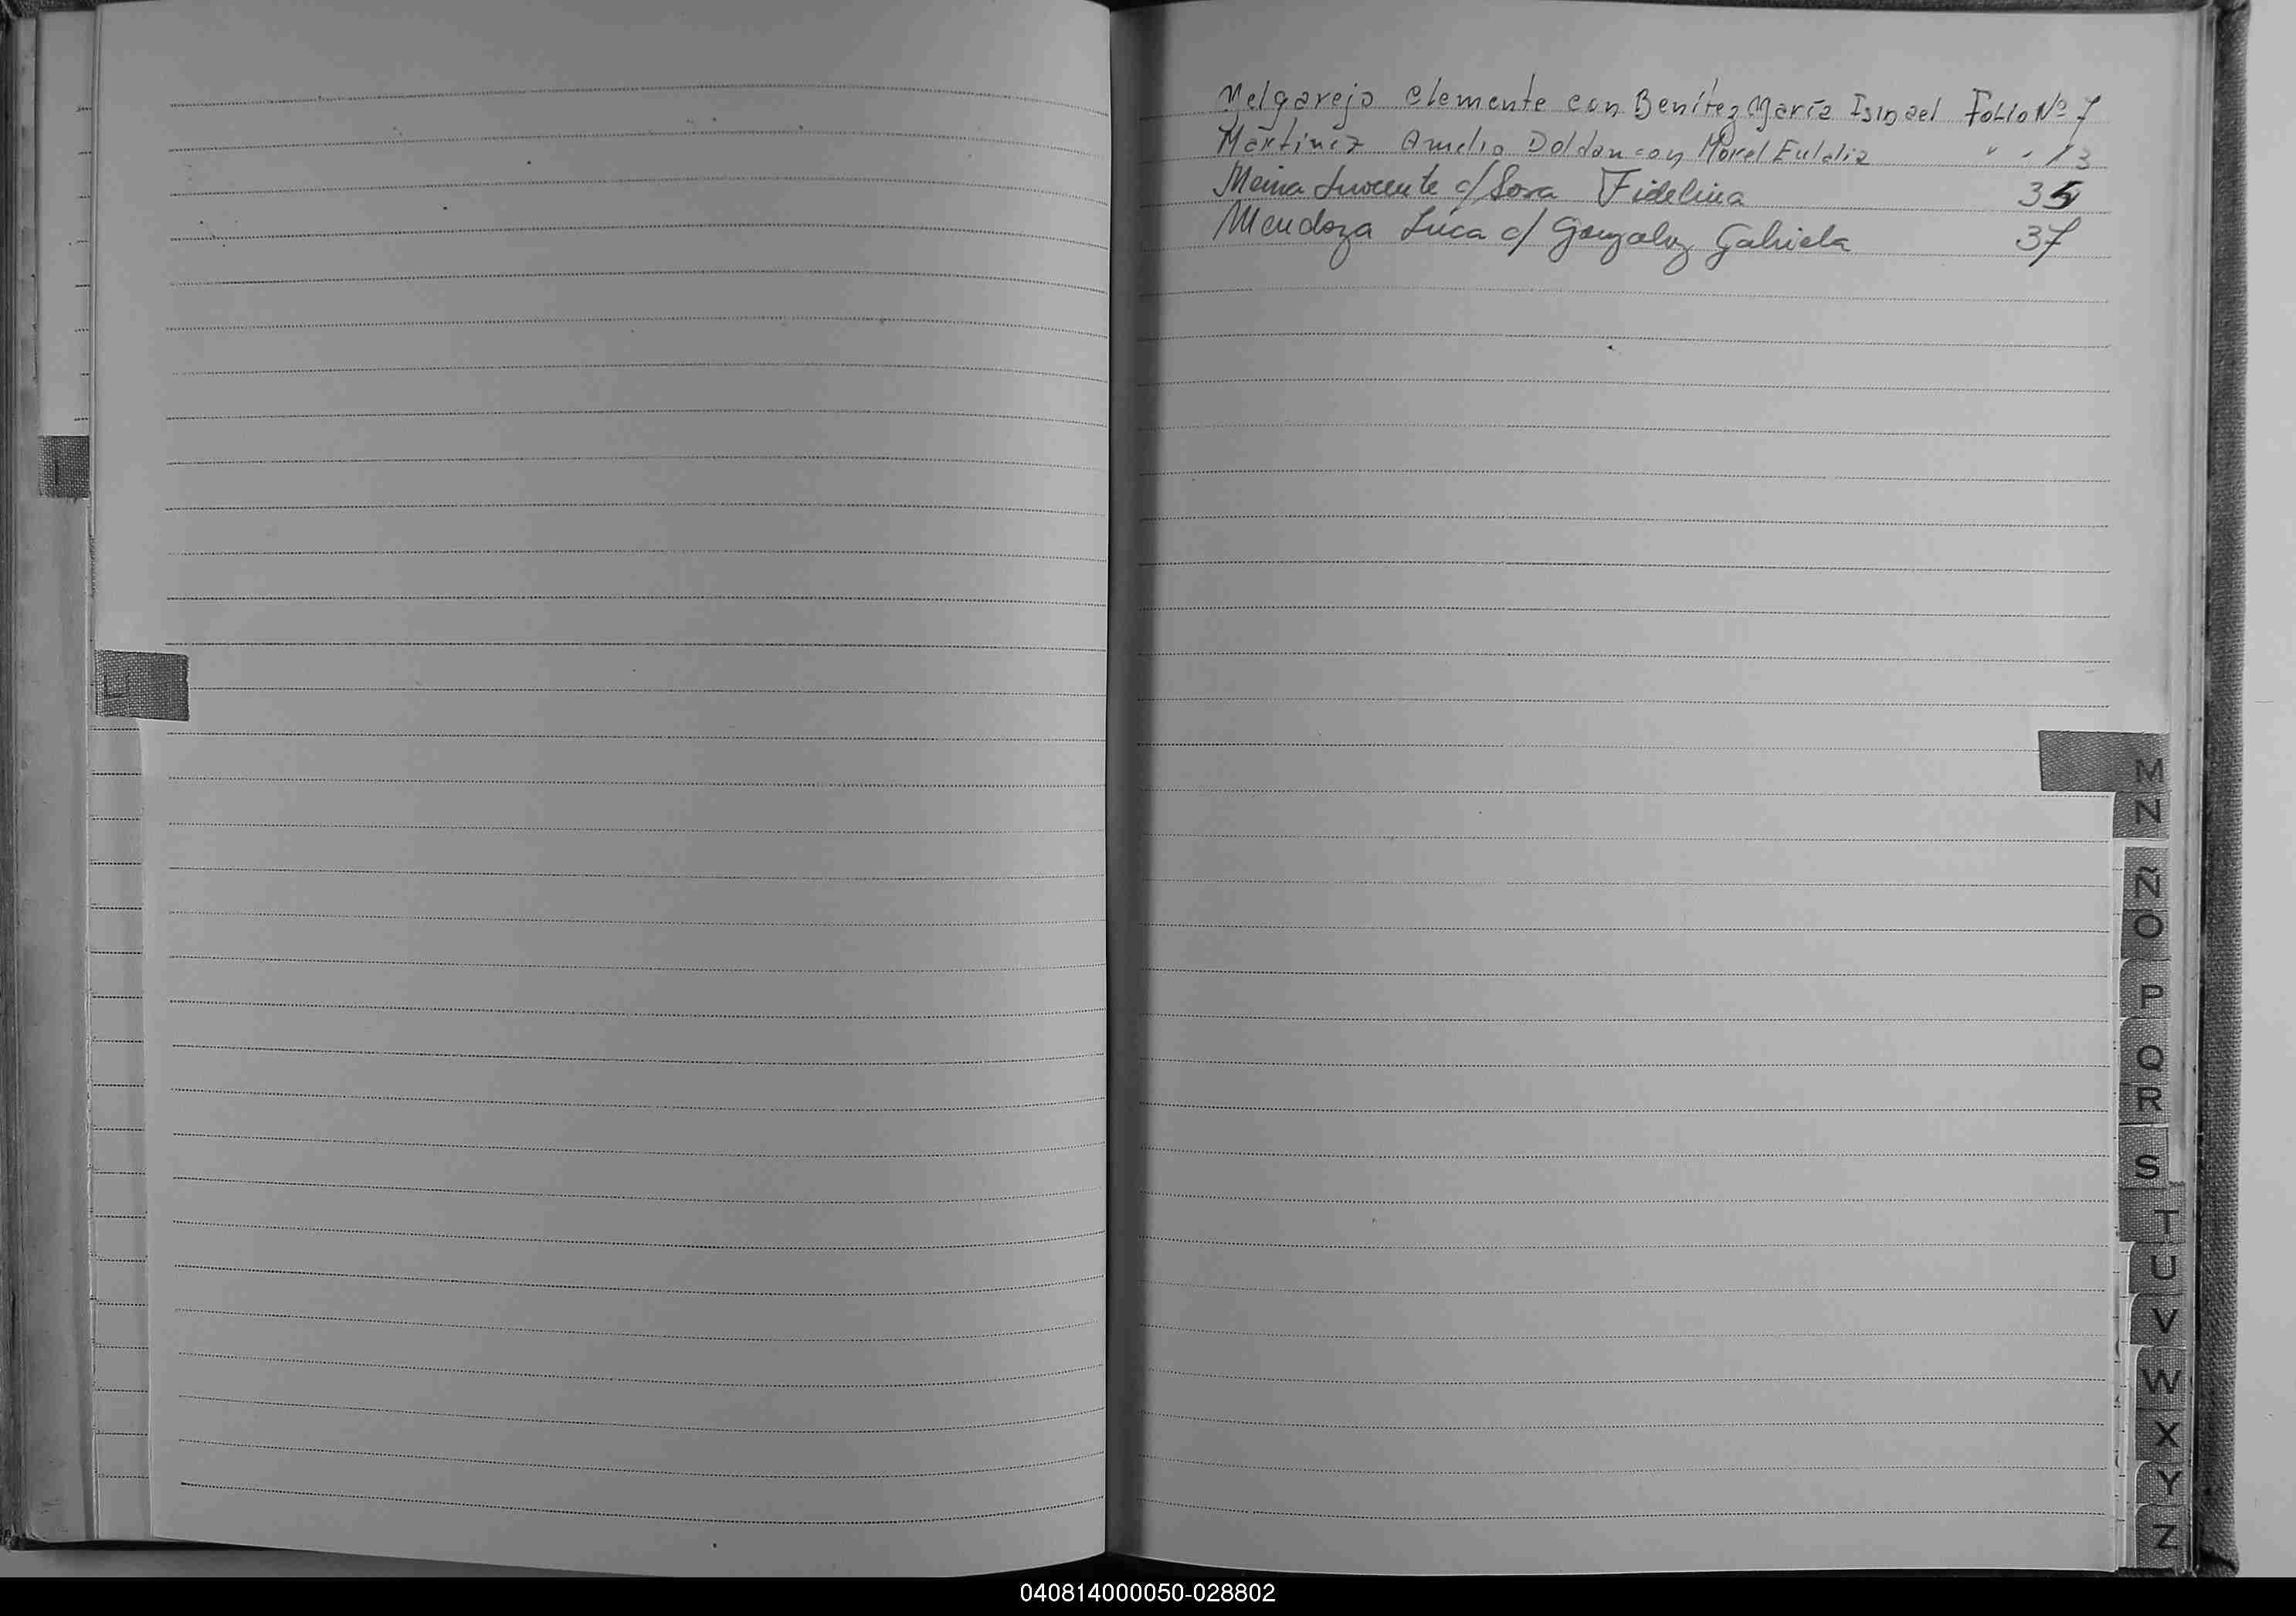 Melgarejo Clemente con Benítez María Isabel Folio Nº 7
Martinez Amelio Doldan con Morel Eulalia " " 13
Meina Inocente c/ Sosa Fidelina 35
Mendoza Luca c/ Gonzalez Gabriela 37
I
L
M
N
Ñ
O
P
Q
R
S
T
U
V
W
X
Y
Z
040814000050-028802